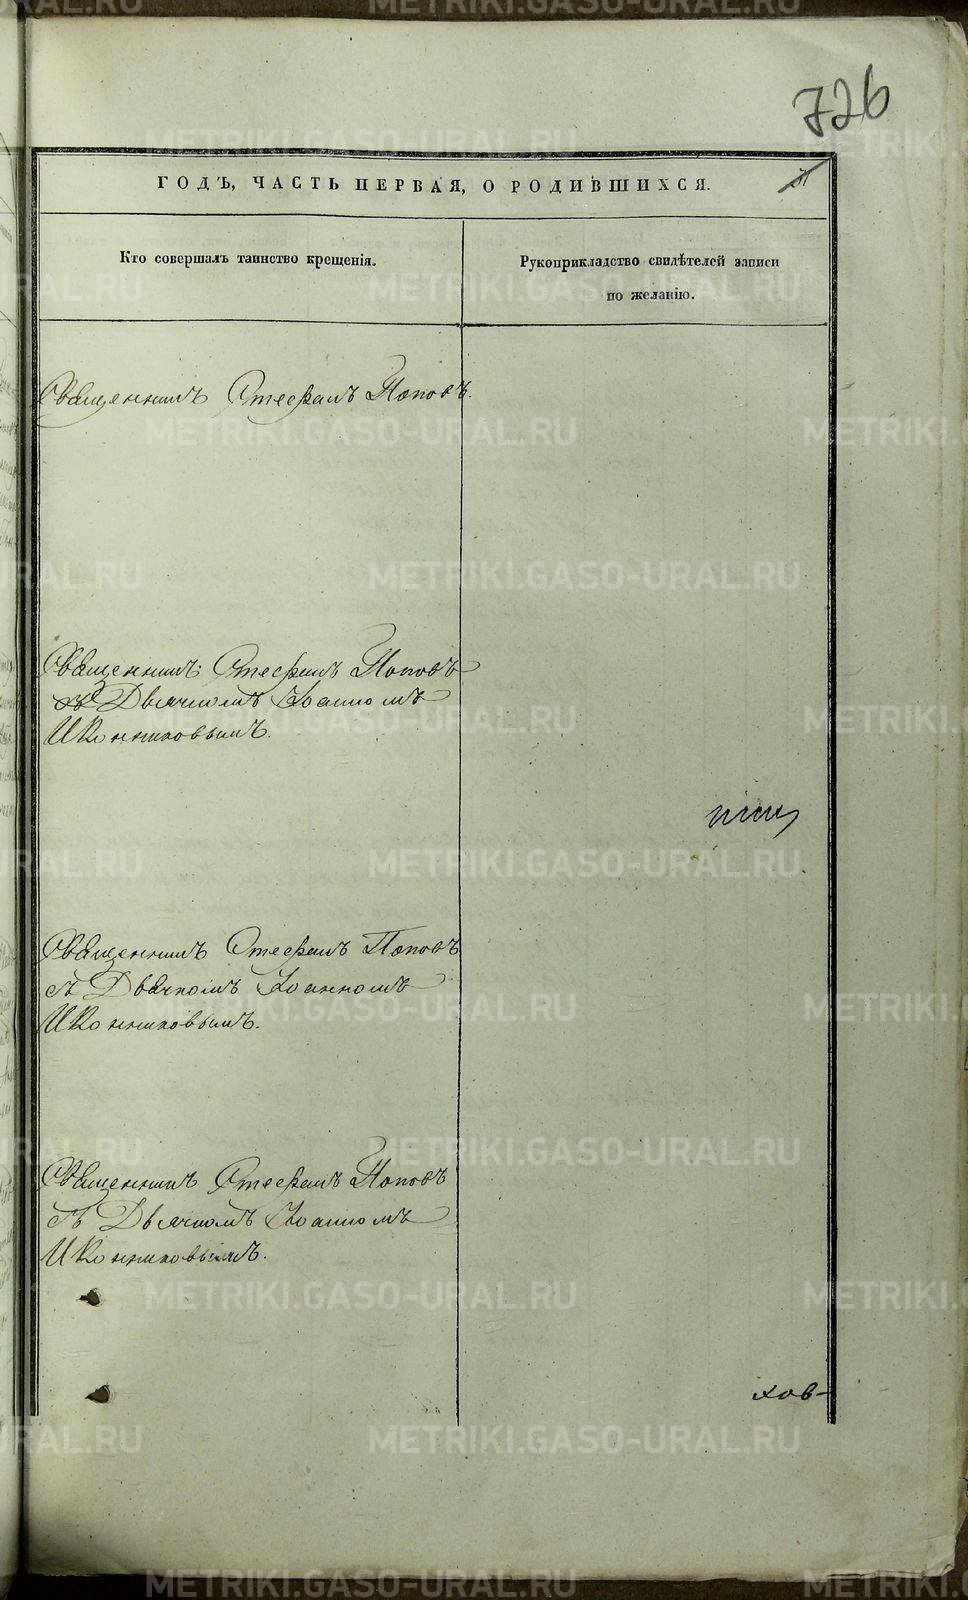 726
ГОДЪ, ЧАСТЬ ПЕРВАЯ, О РОДИВШИХСЯ.
Кто совершалъ таинство крещенія.
Рукоприкладство свидѣтелей записи
по желанію.
Священникъ Стефанъ Поповъ.
Священникъ Стефанъ Поповъ
съ Дьячкомъ Іоанномъ
Иконниковымъ.
Священникъ Стефанъ Поповъ
съ Дьячкомъ Іоанномъ
Иконниковымъ.
Священникъ Стефанъ Поповъ
съ Дьячкомъ Іоанномъ
Иконниковымъ.
ков-
METRIKI.GASO-URAL.RU